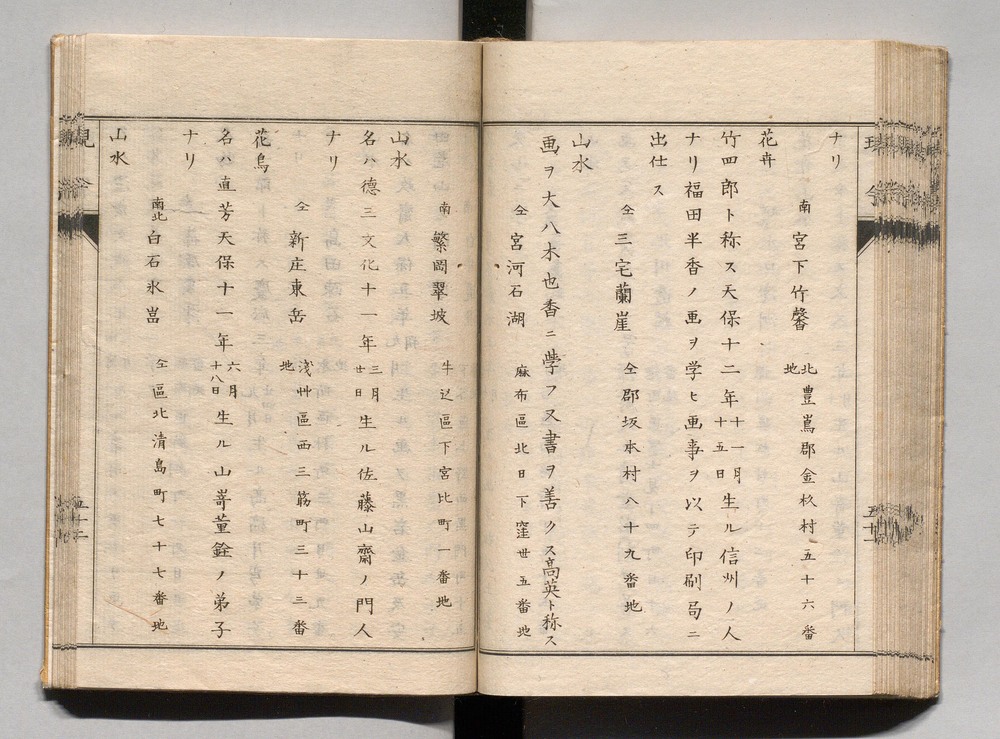 ナリ
花卉
南 宮下竹馨 北豊嶌郡金杉村五十六番地
竹四郎ト称ス天保十二年十一月十五日生ル信州ノ人
ナリ福田半香ノ画ヲ学ヒ画事ヲ以テ印刷局ニ
出仕ス
仝 三宅蘭崖 仝郡坂本村八十九番地
山水
画ヲ大八木也香ニ学フ又書ヲ善クス高英ト称ス
仝 宮河石湖 麻布區北日下窪丗五番地
山水
南 繁岡翠坡 牛込區下宮比町一番地
名ハ德三文化十一年三月廿日生ル佐藤山齋ノ門人
ナリ
仝 新庄東岳 浅艸區西三筋町三十三番地
花鳥
名ハ直芳天保十一年六月十八日生ル山嵜董銓ノ弟子
ナリ
南北 白石氷嵓 仝區北清島町七十七番地
山水